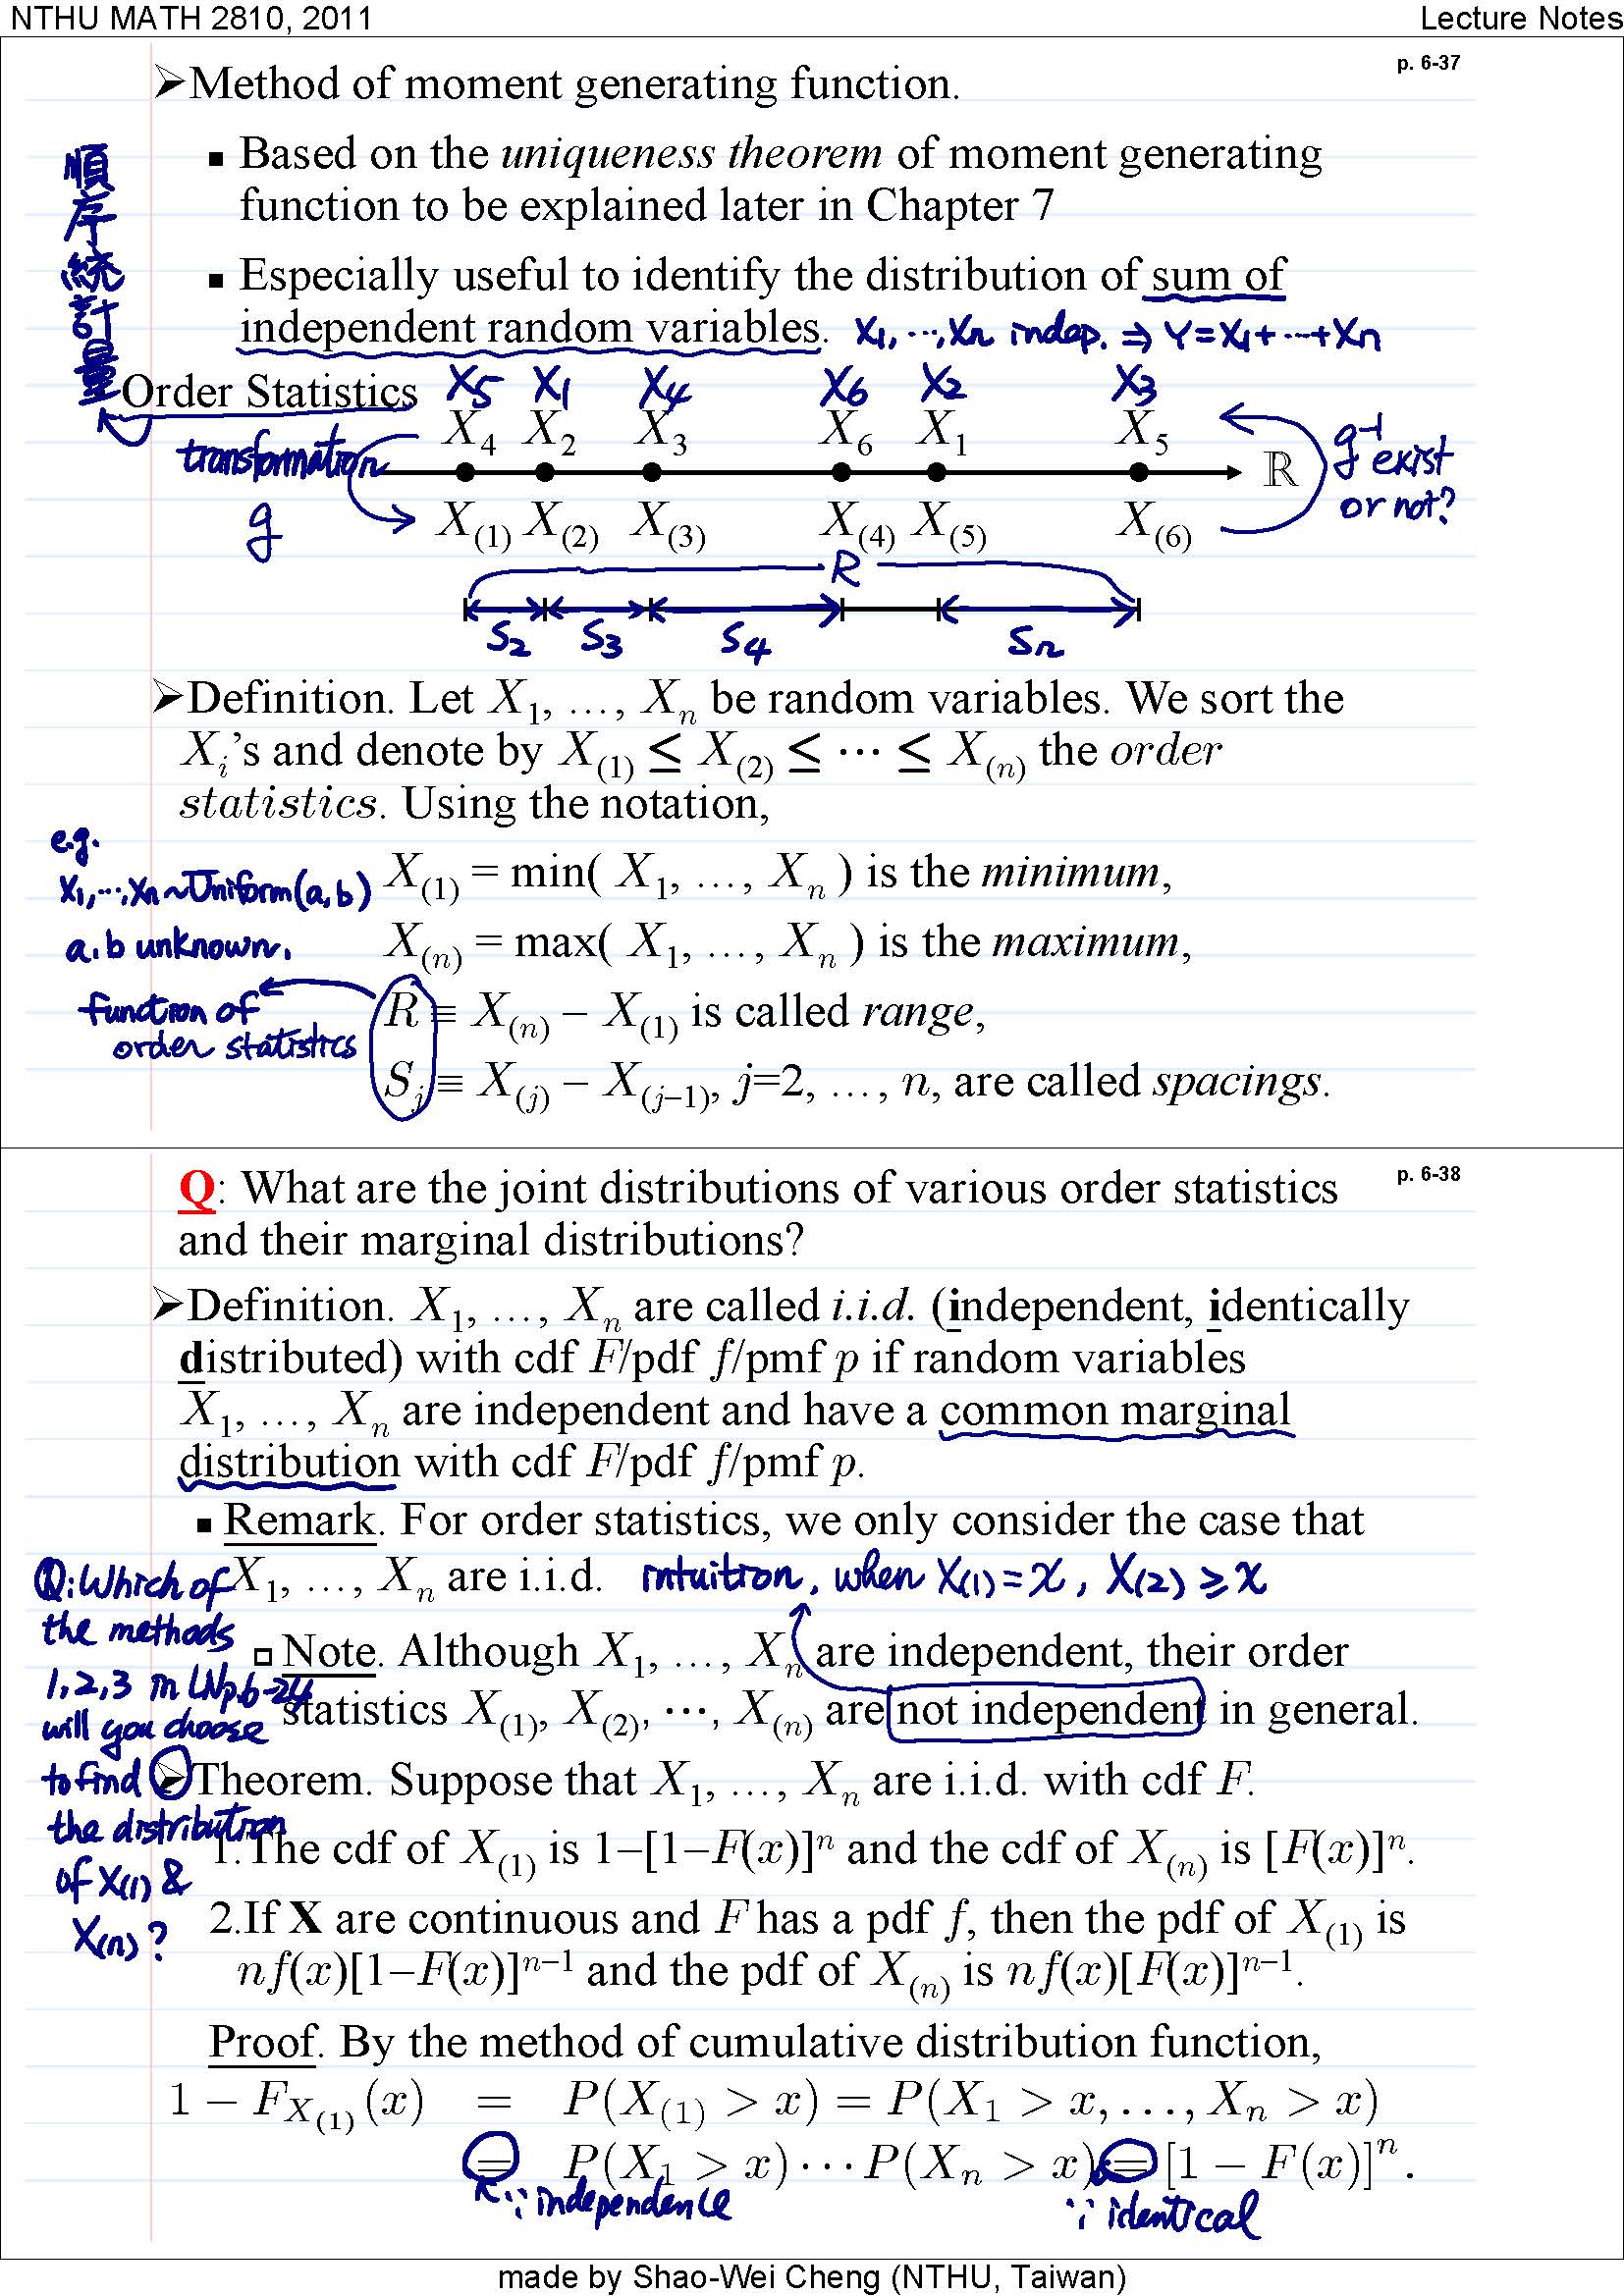 NTHU MATH 2810, 2011 Lecture Notes
p. 6-37
➢Method of moment generating function.
▪ Based on the uniqueness theorem of moment generating
function to be explained later in Chapter 7
▪ Especially useful to identify the distribution of sum of
independent random variables. X1, ..., Xn indep. ⇒ Y = X1 + ... + Xn
順序統計量
Order Statistics
X5 X1 X4 X6 X2 X3
X4 X2 X3 X6 X1 X5
transformation
g
ℝ
g⁻¹ exist
or not?
X(1) X(2) X(3) X(4) X(5) X(6)
R
S2 S3 S4 Sn
➢Definition. Let X1, …, Xn be random variables. We sort the
Xi's and denote by X(1) ≤ X(2) ≤ ⋯ ≤ X(n) the order
statistics. Using the notation,
e.g.
X1, ..., Xn ~ Uniform(a, b)
a, b unknown.
X(1) = min( X1, …, Xn ) is the minimum,
X(n) = max( X1, …, Xn ) is the maximum,
function of
order statistics
R ≡ X(n) − X(1) is called range,
Sj ≡ X(j) − X(j−1), j=2, …, n, are called spacings.
p. 6-38
Q: What are the joint distributions of various order statistics
and their marginal distributions?
➢Definition. X1, …, Xn are called i.i.d. (independent, identically
distributed) with cdf F/pdf f/pmf p if random variables
X1, …, Xn are independent and have a common marginal
distribution with cdf F/pdf f/pmf p.
▪ Remark. For order statistics, we only consider the case that
X1, …, Xn are i.i.d. intuition, when X(1) = x, X(2) ≥ x
□ Note. Although X1, …, Xn are independent, their order
statistics X(1), X(2), ⋯, X(n) are not independent in general.
Q: Which of
the methods
1, 2, 3 in LNp.6-24
will you choose
to find
the distribution
of X(1) &
X(n)?
➢Theorem. Suppose that X1, …, Xn are i.i.d. with cdf F.
1.The cdf of X(1) is 1−[1−F(x)]ⁿ and the cdf of X(n) is [F(x)]ⁿ.
2.If X are continuous and F has a pdf f, then the pdf of X(1) is
nf(x)[1−F(x)]ⁿ⁻¹ and the pdf of X(n) is nf(x)[F(x)]ⁿ⁻¹.
Proof. By the method of cumulative distribution function,
1 − F_X(1)(x) = P(X(1) > x) = P(X1 > x, …, Xn > x)
= P(X1 > x) ⋯ P(Xn > x) = [1 − F(x)]ⁿ.
∵ independence ∵ identical
made by Shao-Wei Cheng (NTHU, Taiwan)